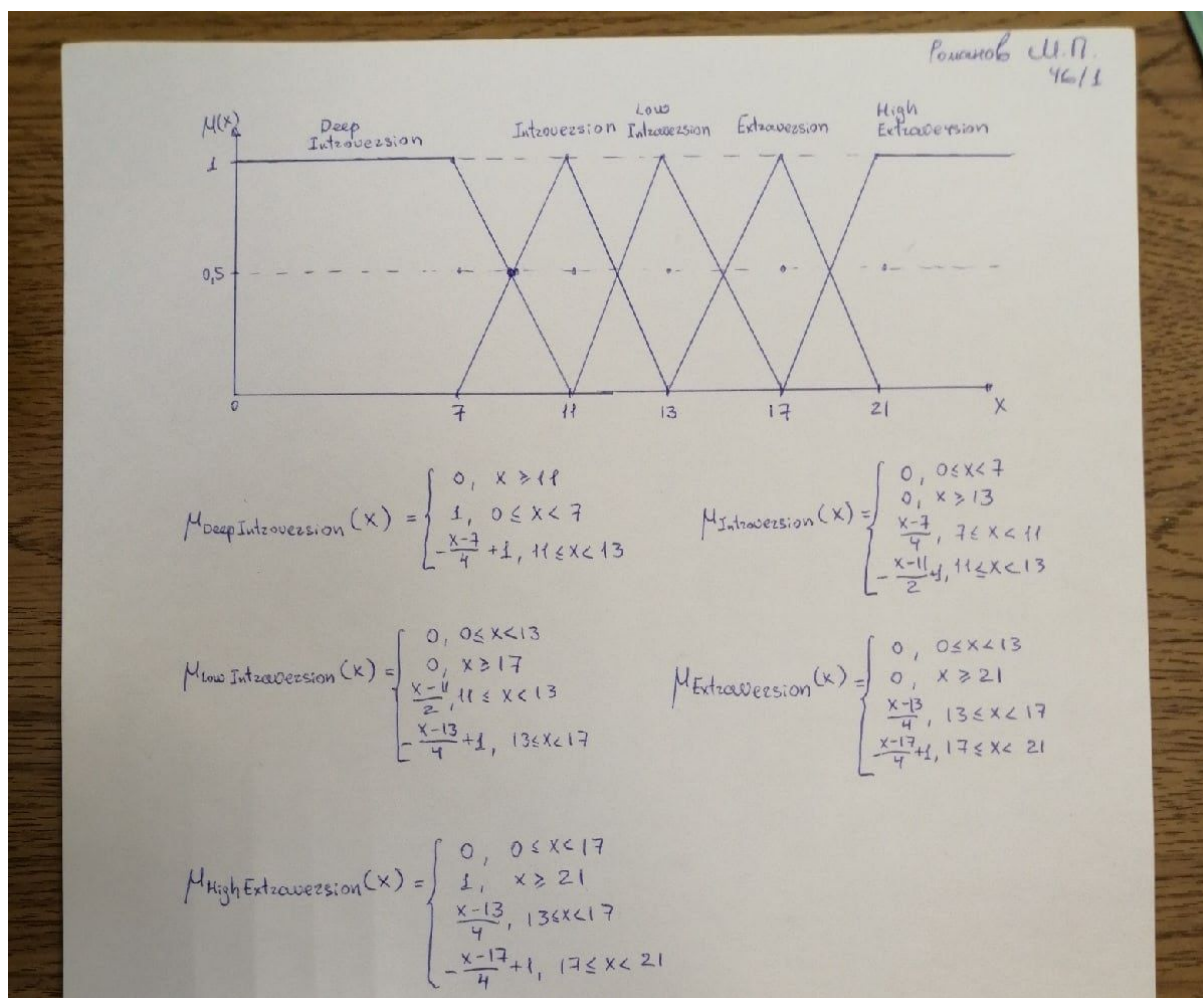 Романов М.П.
4б/1
μ(x)
Deep Introversion
Introversion
Low Intraversion
Extraversion
High Extraversion
1
0,5
0 7 11 13 17 21 X
μ Deep Introversion (x) = { 0, x ≥ 11
1, 0 ≤ x < 7
-(x-7)/4 + 1, 11 ≤ x < 13
μ Introversion (x) = { 0, 0 ≤ x < 7
0, x ≥ 13
(x-7)/4, 7 ≤ x < 11
-(x-11)/2 +1, 11 ≤ x < 13
μ Low Intraversion (x) = { 0, 0 ≤ x < 13
0, x ≥ 17
(x-11)/2, 11 ≤ x < 13
-(x-13)/4 + 1, 13 ≤ x < 17
μ Extraversion (x) = { 0, 0 ≤ x < 13
0, x ≥ 21
(x-13)/4, 13 ≤ x < 17
(x-17)/4 + 1, 17 ≤ x < 21
μ High Extraversion (x) = { 0, 0 ≤ x < 17
1, x ≥ 21
(x-13)/4, 13 ≤ x < 17
-(x-17)/4 + 1, 17 ≤ x < 21